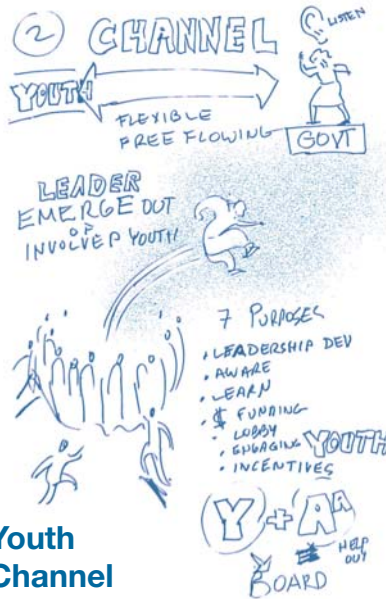 2 CHANNEL
LISTEN
YOUTH
FLEXIBLE
FREE FLOWING
GOVT
LEADER
EMERGE OUT
OF
INVOLVED YOUTH
7 PURPOSES
• LEADERSHIP DEV
• AWARE
• LEARN
• $ FUNDING
• LOBBY
• ENGAGING YOUTH
• INCENTIVES
Y + AA
HELP
OUT
BOARD
Youth
Channel